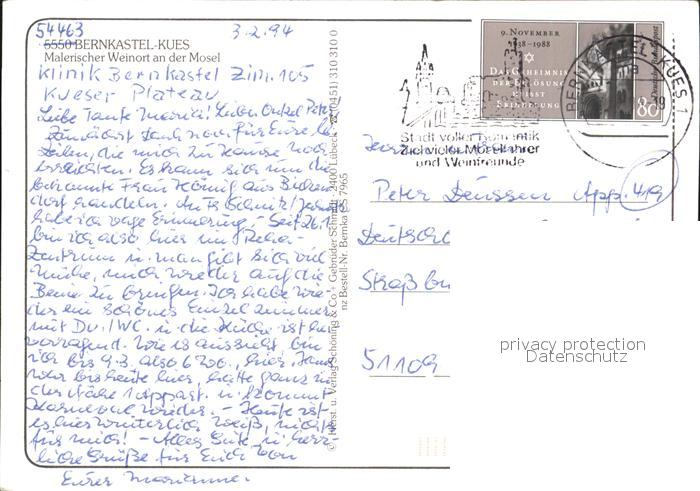 54463
3.2.94
5550 BERNKASTEL-KUES
Malerischer Weinort an der Mosel
Klinik Bernkastel Zim. 105
Kueser Plateau
Liebe Tante Maria! Lieber Onkel Peter
Zunächst Dank noch für Eure lb.
Zeilen, die mich zu Hause noch
erreichten. Es kann sich um die
bekannte Frau König aus
handeln.
habe ich vage Erinnerung. - Seit 26.1.
bin ich also hier im Reha-
Zentrum u. man gibt sich viel
Mühe, mich wieder auf die
Beine zu bringen. Ich habe wie-
der ein schönes Einzelzimmer
mit Du./WC. u. die Küche ist her-
vorragend. Wie es aussieht, bin
ich bis 9.3. also 6 Wo., hier.
war bis heute hier, hatte ganz in
der Nähe 1 Appart. u. kommt
Karneval wieder. - Heute ist
es hier winterlich weiß, nichts
für mich! - Alles Gute u. herz-
liche Grüße für Euch von
Eurer Marianne.
© Horst u. Verlag Schöning & Co + Gebrüder Schmidt · 2400 Lübeck · ☎ (0451) 310 310 0
Bestell-Nr. Bernka CS 7965
9. NOVEMBER
1938-1988
DAS GEHEIMNIS
DER ERLÖSUNG
HEISST
ERINNERUNG
Deutsche Bundespost
80
BERNKASTEL-KUES 1
Stadt voller Romantik
Ziel vieler Moselfahrer
und Weinfreunde
Peter Deussen App. 419
Deutsch
Straßbu
51109
privacy protection
Datenschutz